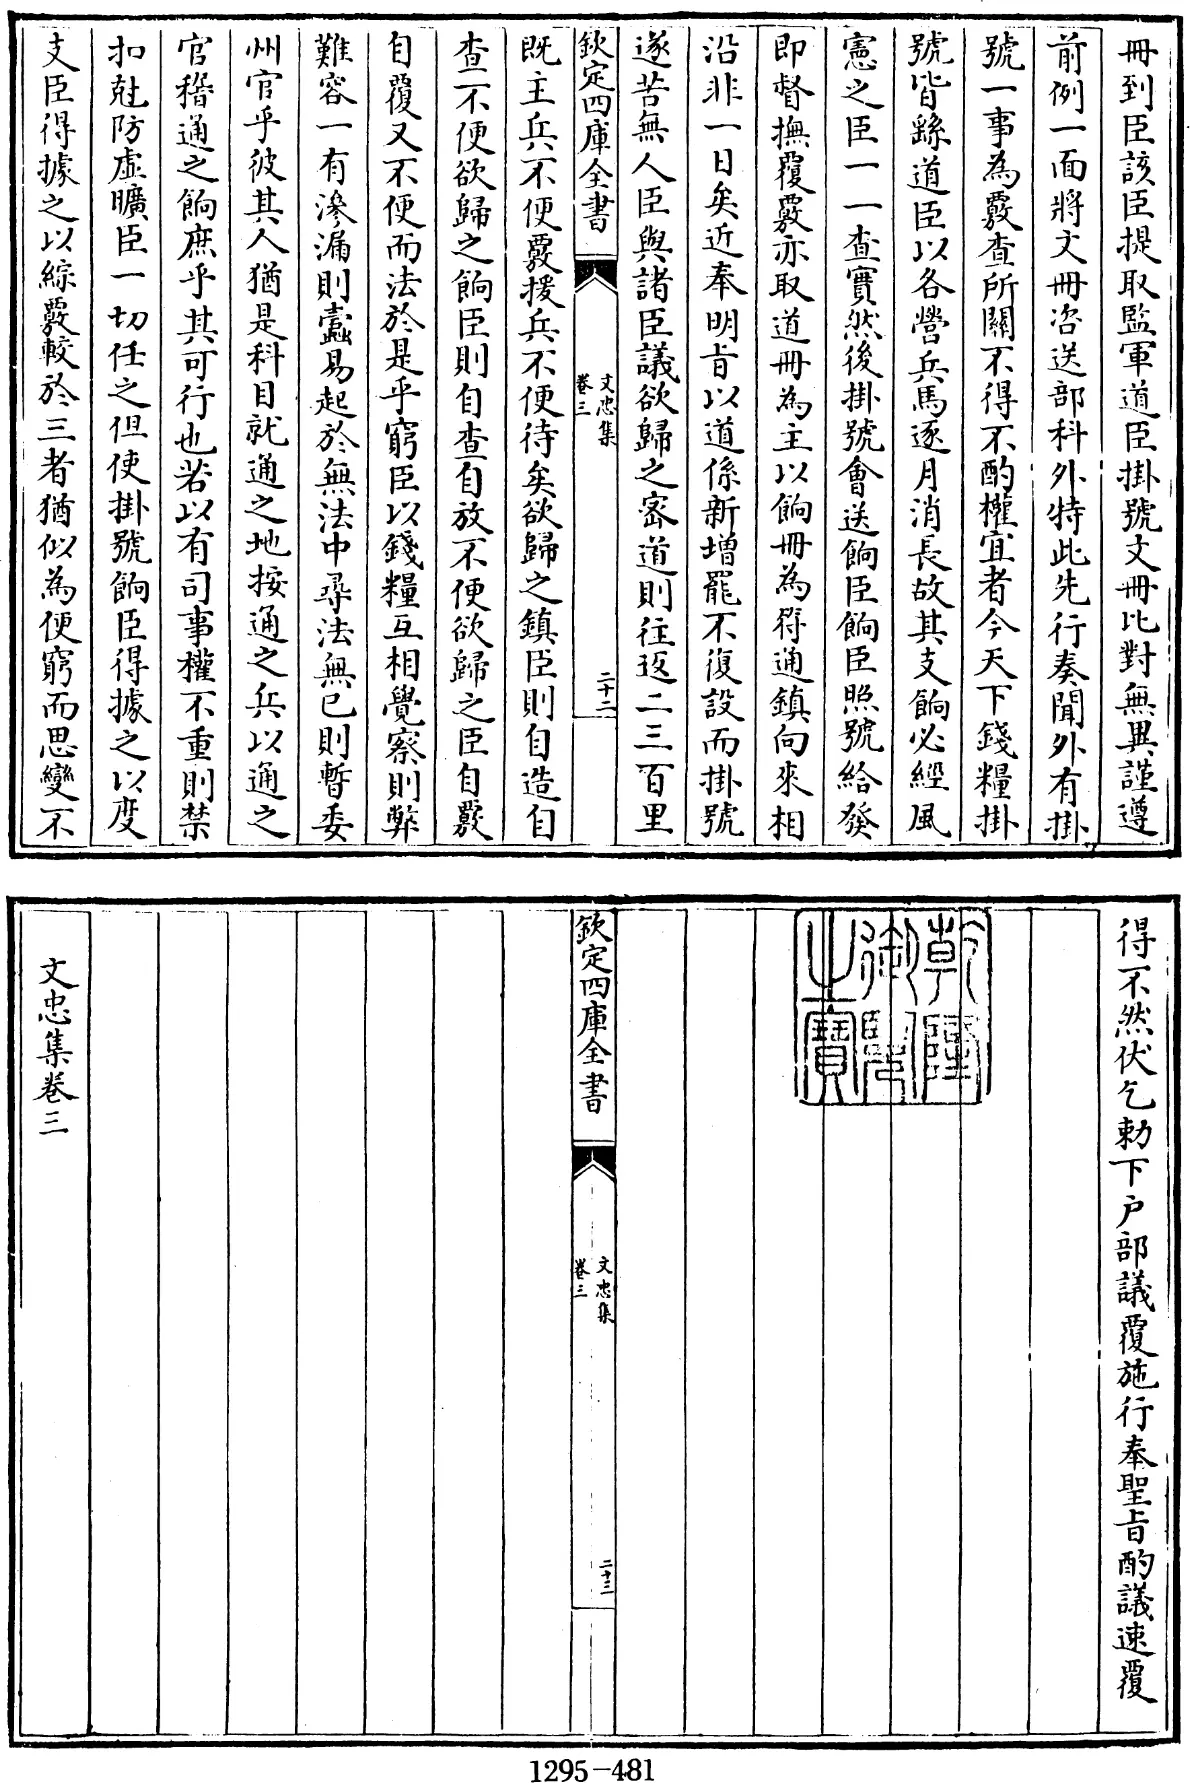 冊到臣該臣提取監軍道臣掛號文冊比對無異謹遵
前例一面將文冊咨送部科外特此先行奏聞外有掛
號一事為覈查所關不得不酌權宜者今天下錢糧掛
號皆繇道臣以各營兵馬逐月消長故其支餉必經風
憲之臣一一查實然後掛號會送餉臣餉臣照號給發
即督撫覆覈亦取道冊為主以餉冊為符通鎮向來相
沿非一日矣近奉明旨以道係新增罷不復設而掛號
遂苦無人臣與諸臣議欲歸之密道則往返二三百里
欽定四庫全書
文忠集
卷三
二十二
既主兵不便覈援兵不便待矣欲歸之鎮臣則自造自
查一不便欲歸之餉臣則自查自放不便欲歸之臣自覈
自覆又不便而法於是乎窮臣以錢糧互相覺察則弊
難容一有滲漏則蠧易起於無法中尋法無已則暫委
州官乎彼其人猶是科目就通之地按通之兵以通之
官稽通之餉庶乎其可行也若以有司事權不重則禁
扣尅防虛曠臣一切任之但使掛號餉臣得據之以度
支臣得據之以綜覈較於三者猶似為便窮而思變不
得不然伏乞勅下户部議覆施行奉聖旨酌議速覆
乾隆
御覽
之寶
欽定四庫全書
文忠集
卷三
二十三
文忠集卷三
1295-481